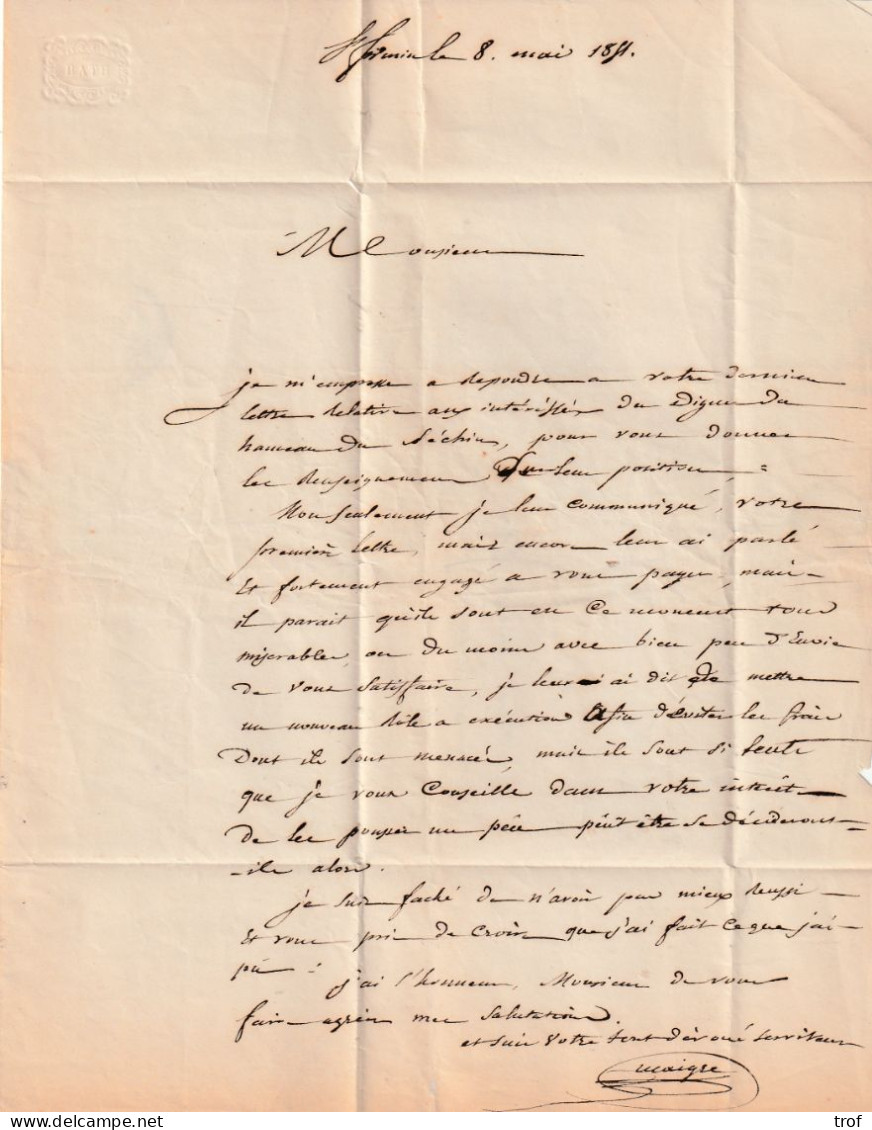 BATH
St firmin le 8. mai 1851.
Monsieur
je m'empresse a repondre a votre dernière
lettre relative aux intéréssés du digue du
hameau du Séchier, pour vous donner
les renseignemens sur leur position,
Non seulement je leur communiqué, votre
premièr lettre, mais encor leur ai parlé
Et fortement engagé a vous payer, mais
il parait qu'ils sont en Ce moment tous
miserables, ou du moins avec bien peu d'Envie
de vous Satisfaire, je leur ai dit de mettre
un nouveau Rôle a exécution Afin d'éviter les frais
Dont ils sont menacés, mais ils sont si lents
que je vous Conseille dans votre intérêt
de les pousser un peu peût être se décideront-
-ils alors.
je suis faché de n'avoir pas mieux reussi
Et vous pri de Croire que j'ai fait Ce que j'ai
pû.
j'ai l'honneur, Monsieur de vous
faire agréer mes salutations.
et suis votre tout dévoué serviteur
maigre
delcampe.net
trof